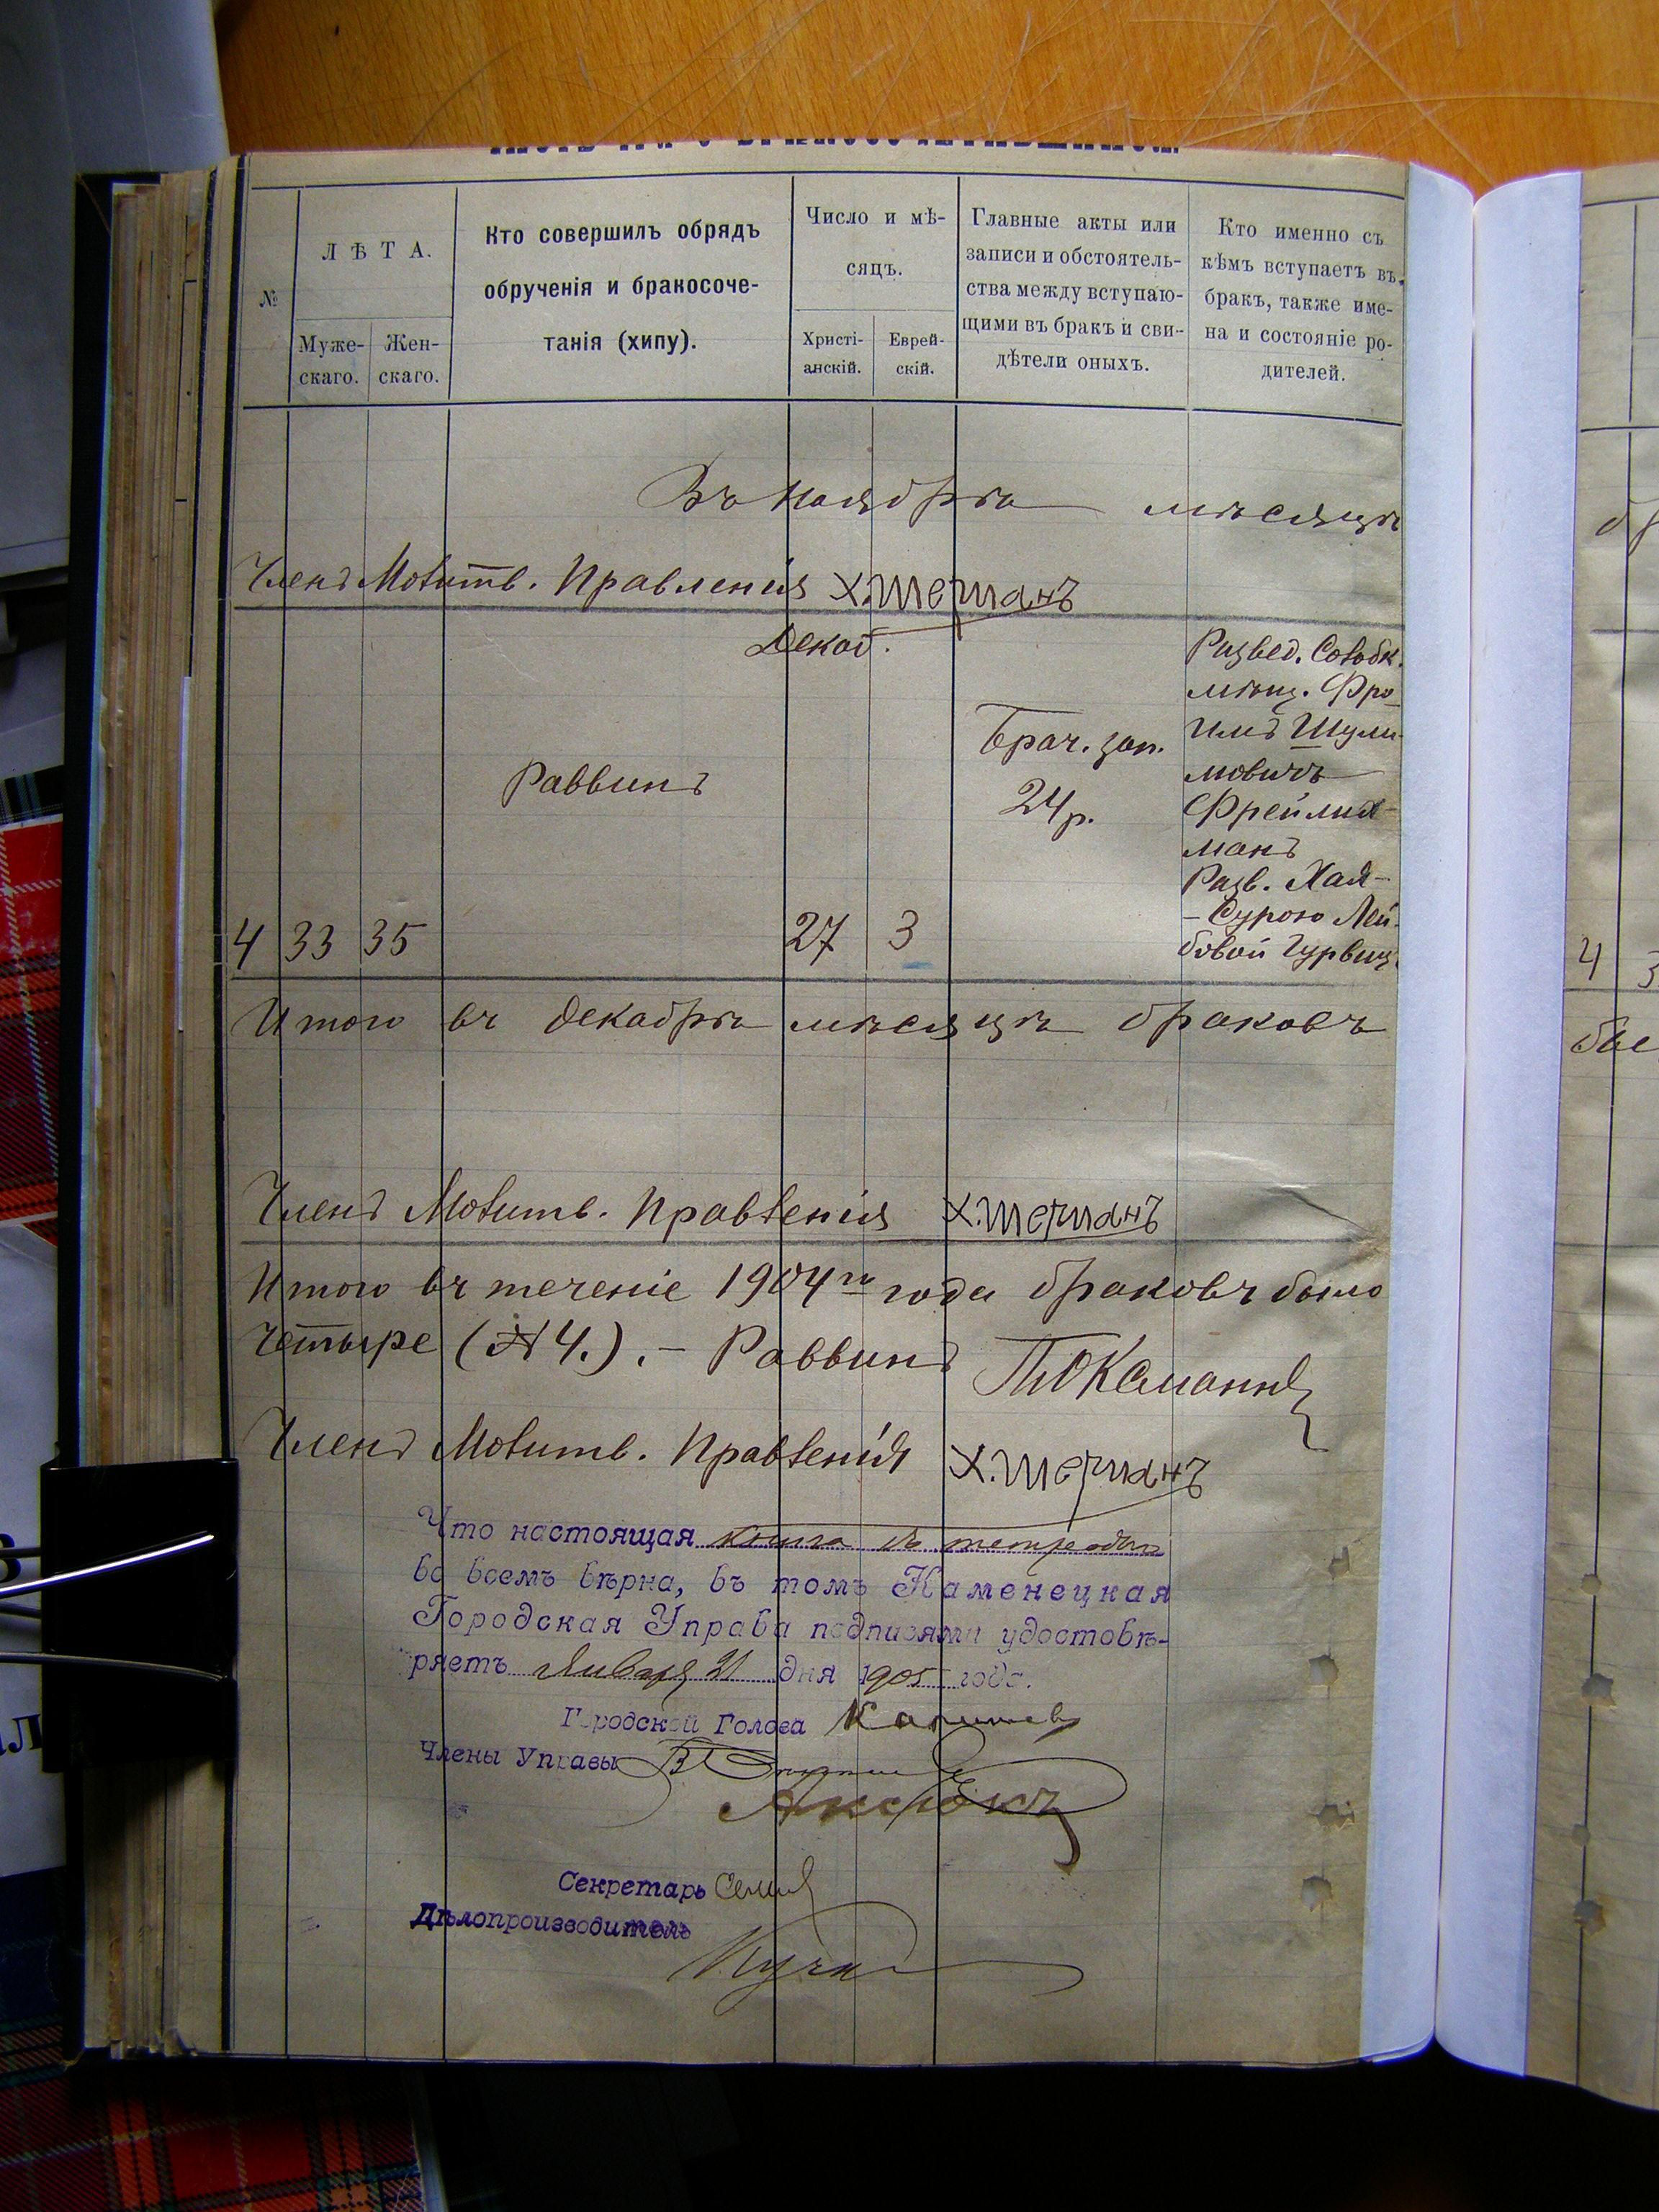 №
ЛѢТА.
Муже-
скаго.
Жен-
скаго.
Кто совершилъ обрядъ
обрученія и бракосоче-
танія (хипу).
Число и мѣ-
сяцъ.
Христі-
анскій.
Еврей-
скій.
Главные акты или
записи и обстоятель-
ства между вступаю-
щими въ бракъ и сви-
дѣтели оныхъ.
Кто именно съ
кѣмъ вступаетъ въ
бракъ, также име-
на и состояніе ро-
дителей.
Въ ноябрѣ мѣсяцѣ
Членъ Молитв. Правленія Х. Шерманъ
Декаб.
4 33 35
Раввинъ
27 3
Брач. зап.
24 р.
Развед.
мѣщ. Фро
имъ Шули-
мовичъ
Фрейли
манъ
Разв. Хая-
-Сурою Лей-
бовой Гурвиц
Итого въ декабрѣ мѣсяцѣ браковъ
Членъ Молитв. Правленія Х. Шерманъ
Итого въ теченіе 1904 го года браковъ было
четыре (№ 4.). – Раввинъ
Членъ Молитв. Правленія Х. Шерманъ
Что настоящая книга въ тетради
во всемъ вѣрна, въ томъ Каменецкая
Городская Управа подписями удостовѣ-
ряетъ Января 21 дня 1905 года.
Городской Голова
Члены Управы
Секретарь
Дѣлопроизводитель
4 3